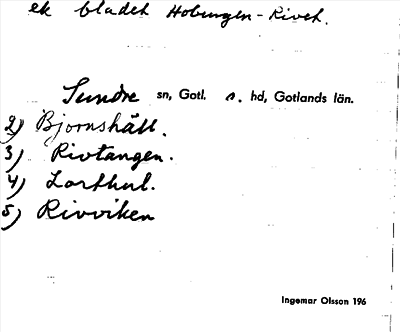 ek bladet Hoburgen-Rivet.
Sundre sn, Gotl. s. hd, Gotlands län.
2) Bjornshäll.
3) Rivtangen.
4) Lorthul.
5) Rivviken
Ingemar Olsson 196